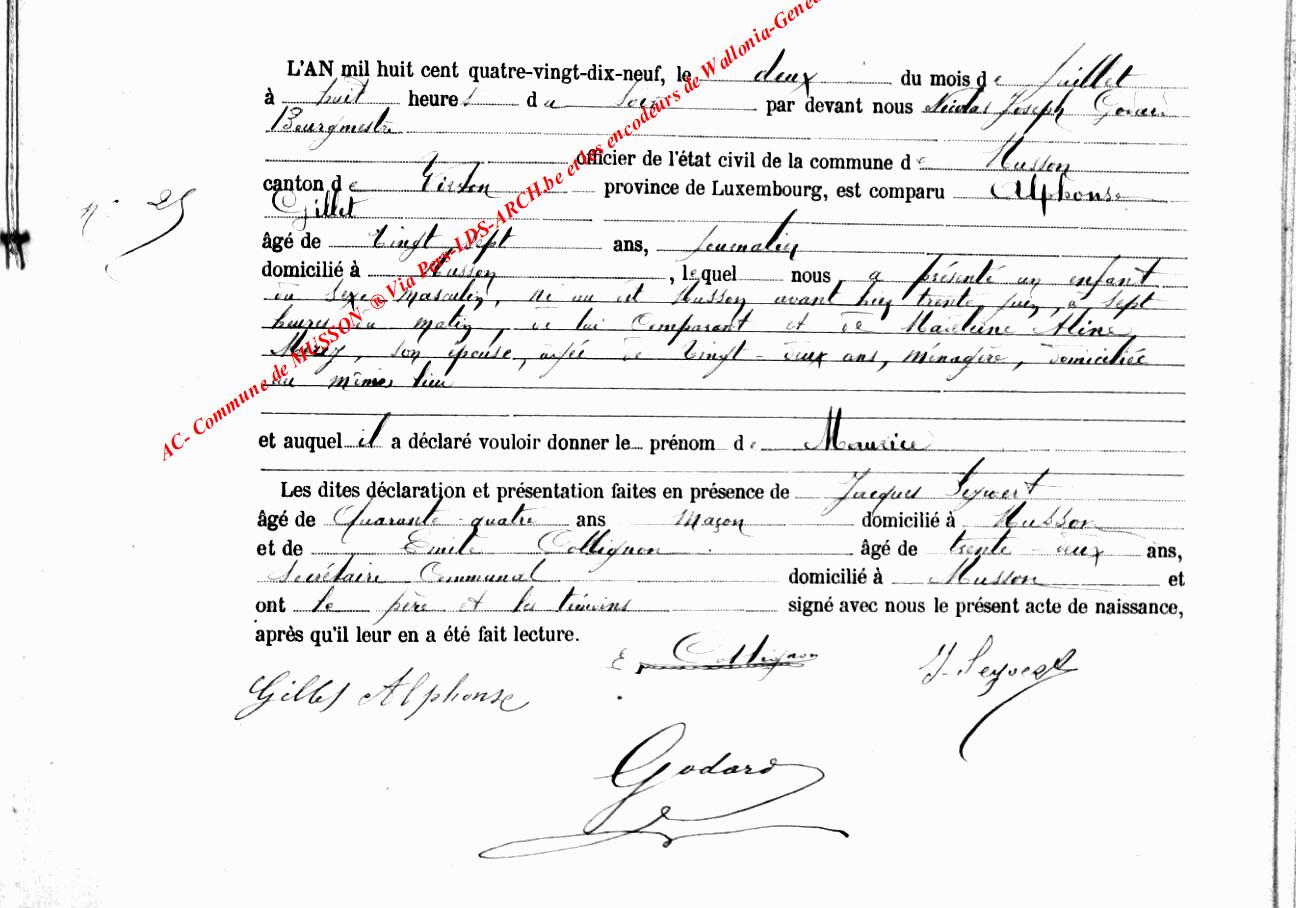 L'AN mil huit cent quatre-vingt-dix-neuf, le deux du mois de Juillet
à huit heures du soir par devant nous Nicolas Joseph Godard
Bourgmestre
officier de l'état civil de la commune de Musson
canton de Virton province de Luxembourg, est comparu Alphonse
Gillet
N° 25
âgé de Vingt sept ans, journalier
domicilié à Musson, lequel nous a présenté un enfant
du sexe masculin, né au dit Musson avant hier trente juin, à Sept
heures du matin, de lui Comparant et de Madeleine Aline
son épouse, agée de Vingt-deux ans, ménagère, domiciliée
au même lieu
et auquel il a déclaré vouloir donner le prénom de Maurice
Les dites déclaration et présentation faites en présence de Jacques Seywert
âgé de Quarante quatre ans Maçon domicilié à Musson
et de Emile Collignon âgé de trente-deux ans,
Secrétaire Communal domicilié à Musson et
ont le père et les témoins signé avec nous le présent acte de naissance,
après qu'il leur en a été fait lecture.
E Collignon J. Seywert
Gillet Alphonse
Godard
AC- Commune de MUSSON- ® Via Pers-LDS-ARCH.be et les encodeurs de Wallonia-Gene